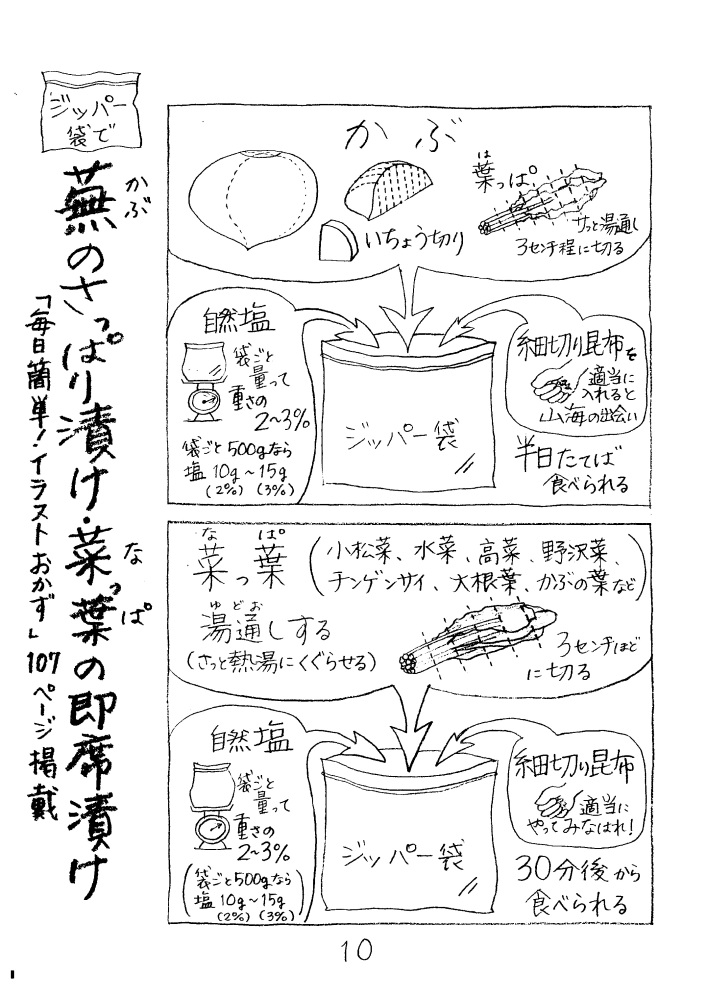 ジッパー
袋で
蕪のさっぱり漬け・菜っ葉の即席漬け
かぶ
な
ぱ
「毎日簡単!イラストおかず」107ページ掲載
かぶ
は
葉っぱ
いちょう切り
サッと湯通し
3センチ程に切る
自然塩
袋ごと
量って
重さの
2~3%
袋ごと500gなら
塩10g~15g
(2%)(3%)
ジッパー袋
細切り昆布を
適当に
入れると
山海の出会い
半日たてば
食べられる
な ぱ
菜っ葉
(小松菜、水菜、高菜、野沢菜、
チンゲンサイ、大根葉、かぶの葉など)
ゆどお
湯通しする
(さっと熱湯にくぐらせる)
3センチほど
に切る
自然塩
袋ごと
量って
重さの
2~3%
(袋ごと500gなら
塩10g~15g
(2%)(3%))
ジッパー袋
細切り昆布
適当に
やってみなはれ!
30分後から
食べられる
10